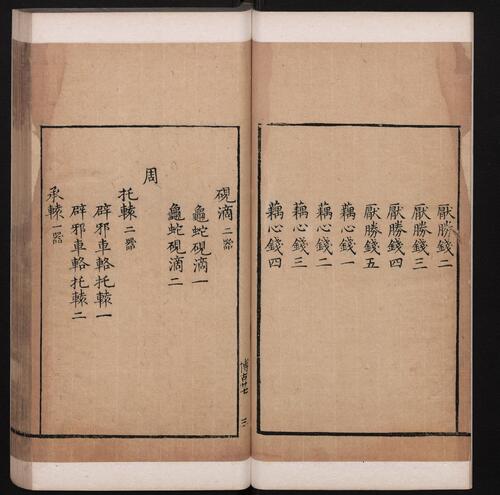 厭勝錢二
厭勝錢三
厭勝錢四
厭勝錢五
藕心錢一
藕心錢二
藕心錢三
藕心錢四
硯滴二器
龜蛇硯滴一
龜蛇硯滴二
周
托轅二器
辟邪車輅托轅一
辟邪車輅托轅二
承轅一器
博古廿七
三